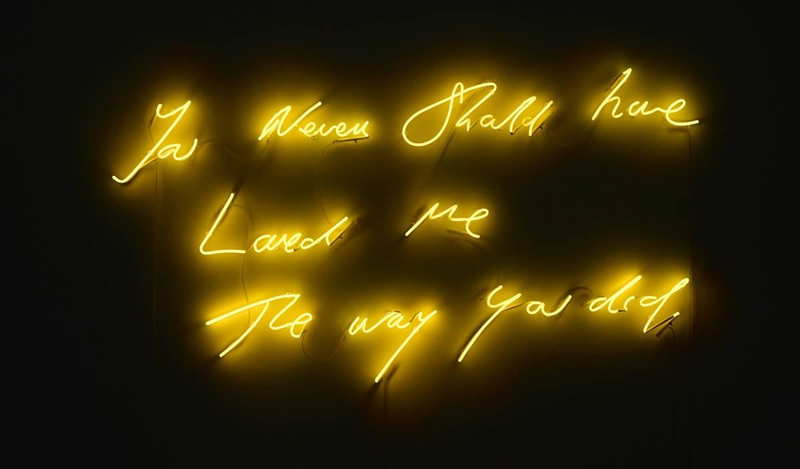 You Never Should have
Loved me
The way you did,